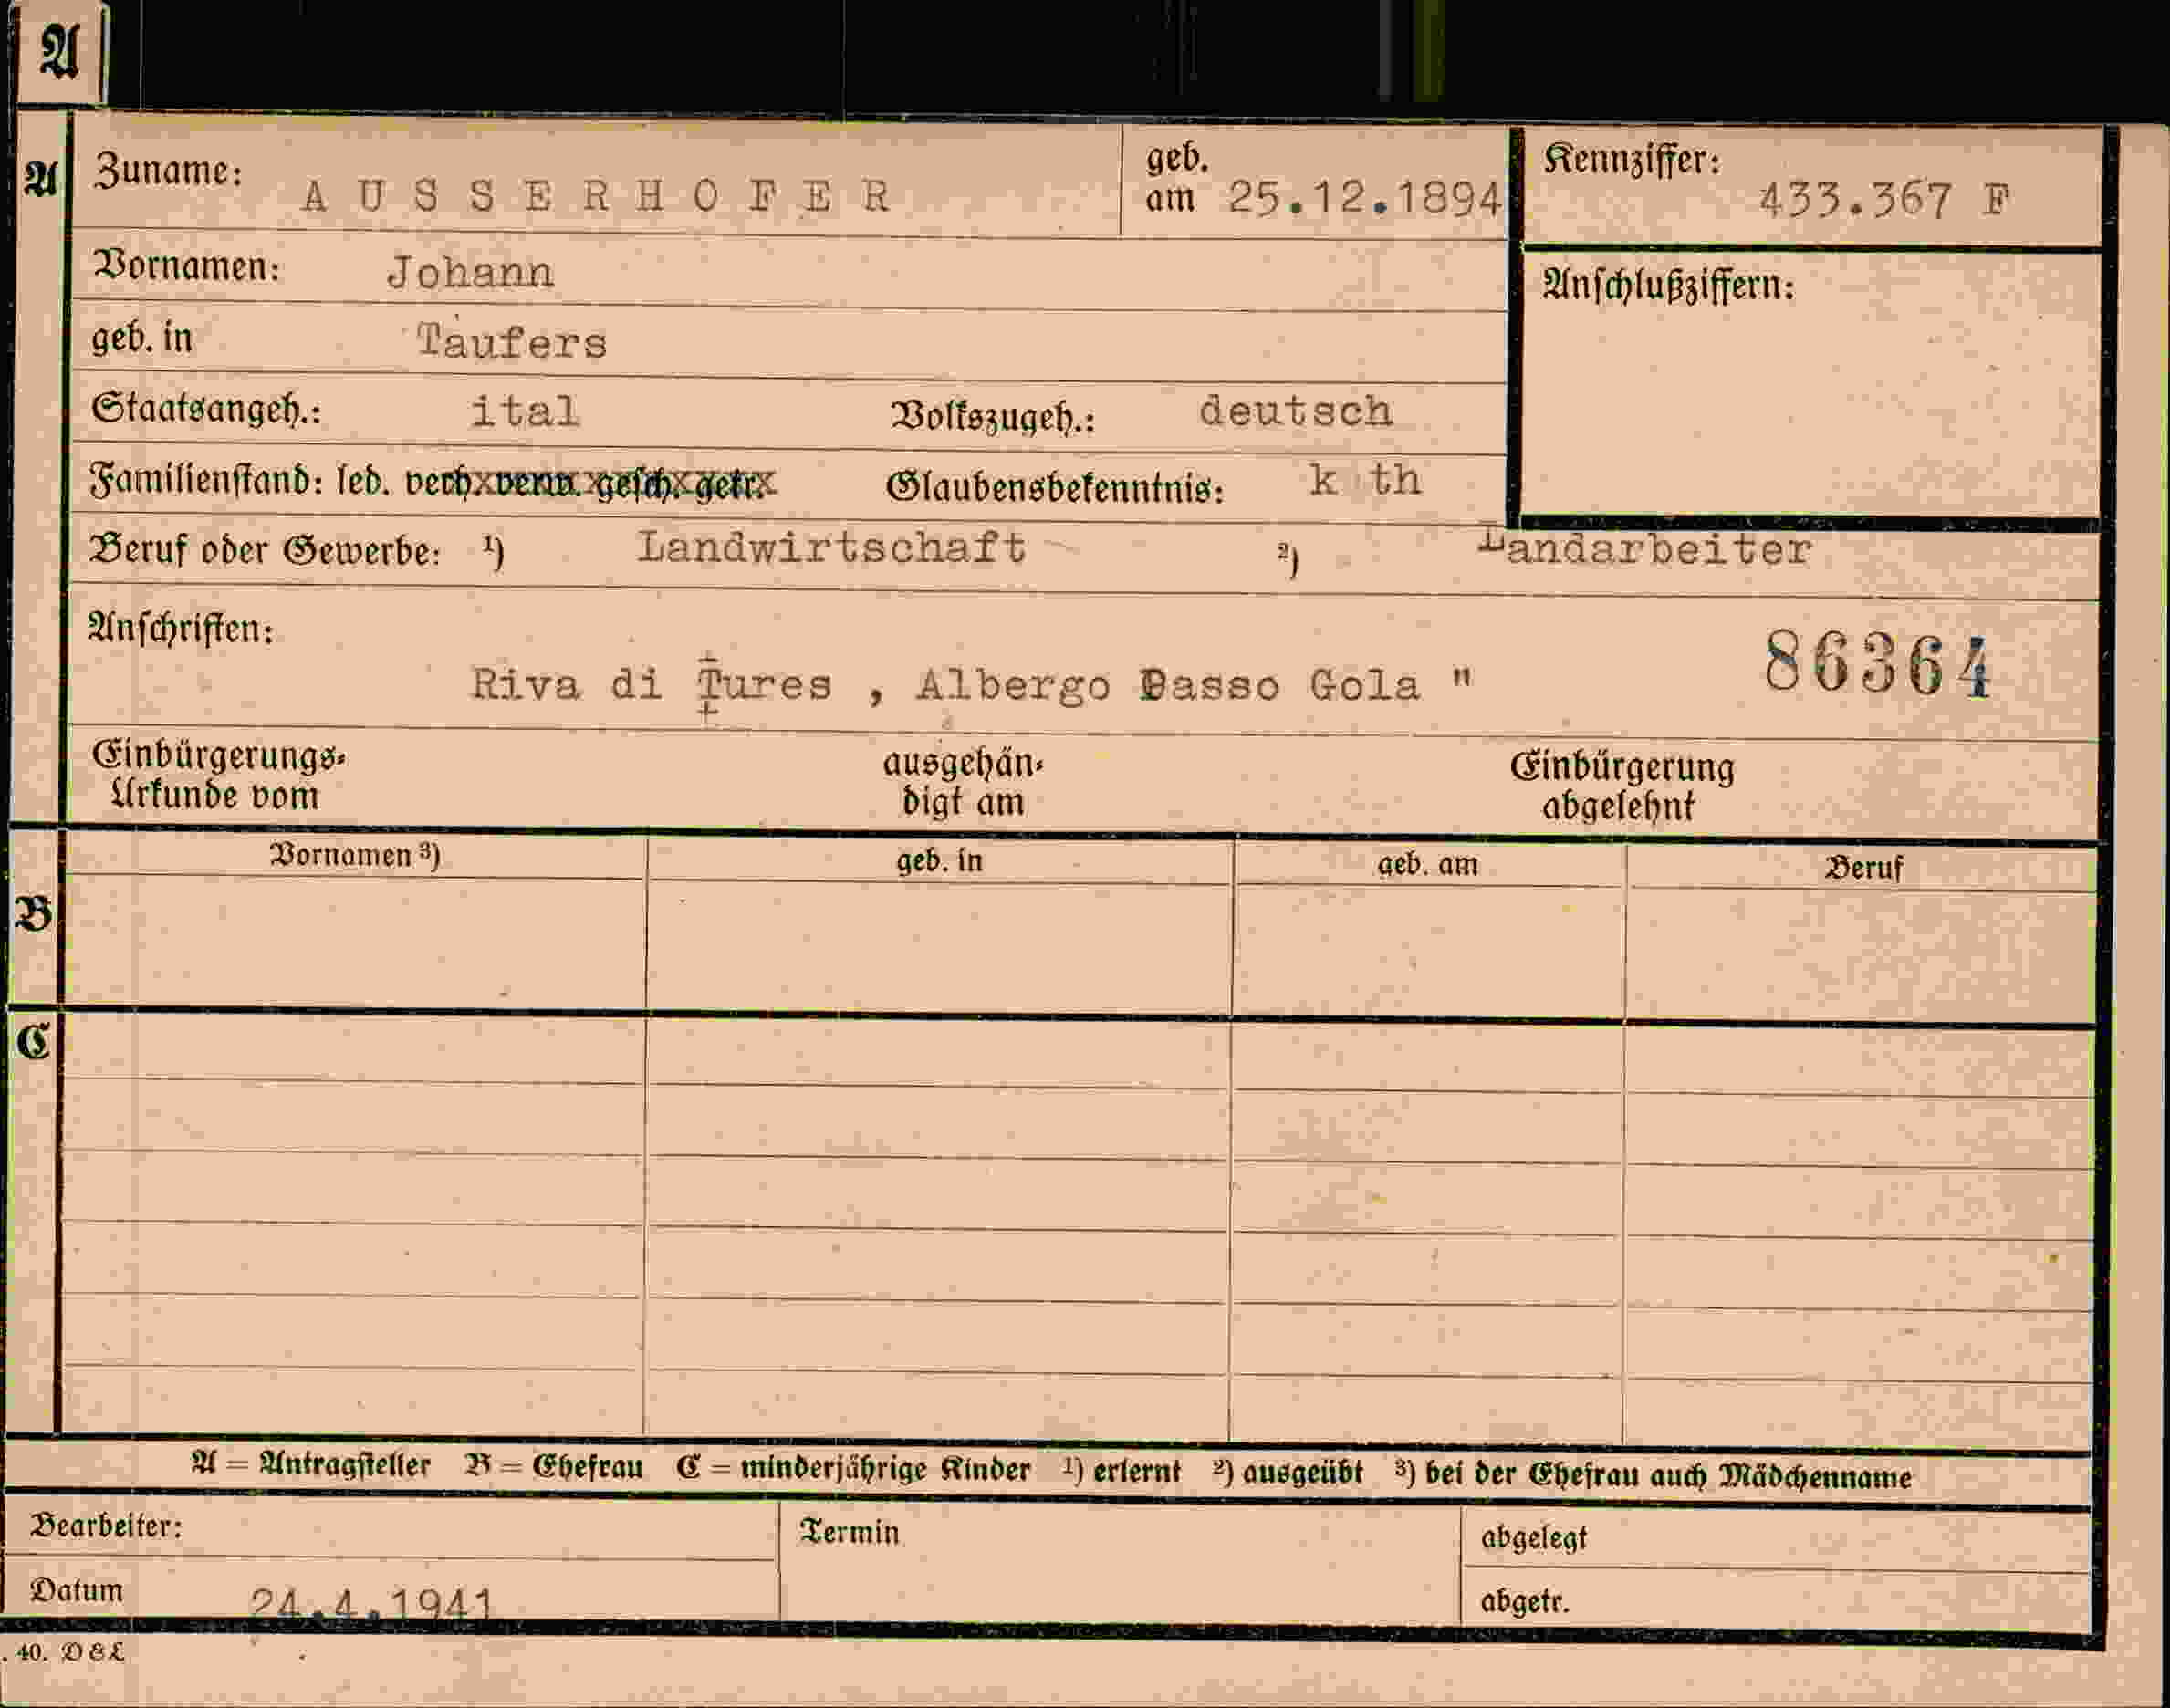 A
A
Zuname: AUSSERHOFER geb. am 25.12.1894 Kennziffer: 433.367 F
Vornamen: Johann Anschlußziffern:
geb. in Taufers
Staatsangeh.: ital Volkszugeh.: deutsch
Familienstand: led. verh. verw. gesch. getr. Glaubensbekenntnis: k th
Beruf oder Gewerbe: ¹) Landwirtschaft ²) Landarbeiter
Anschriften: 86364
Riva di Tures , Albergo Dasso Gola "
Einbürgerungs- ausgehän- Einbürgerung
Urkunde vom digt am abgelehnt
Vornamen ³) geb. in geb. am Beruf
B
C
A = Antragsteller B = Ehefrau C = minderjährige Kinder ¹) erlernt ²) ausgeübt ³) bei der Ehefrau auch Mädchenname
Bearbeiter: Termin abgelegt
Datum 24.4.1941 abgetr.
. 40. D & L